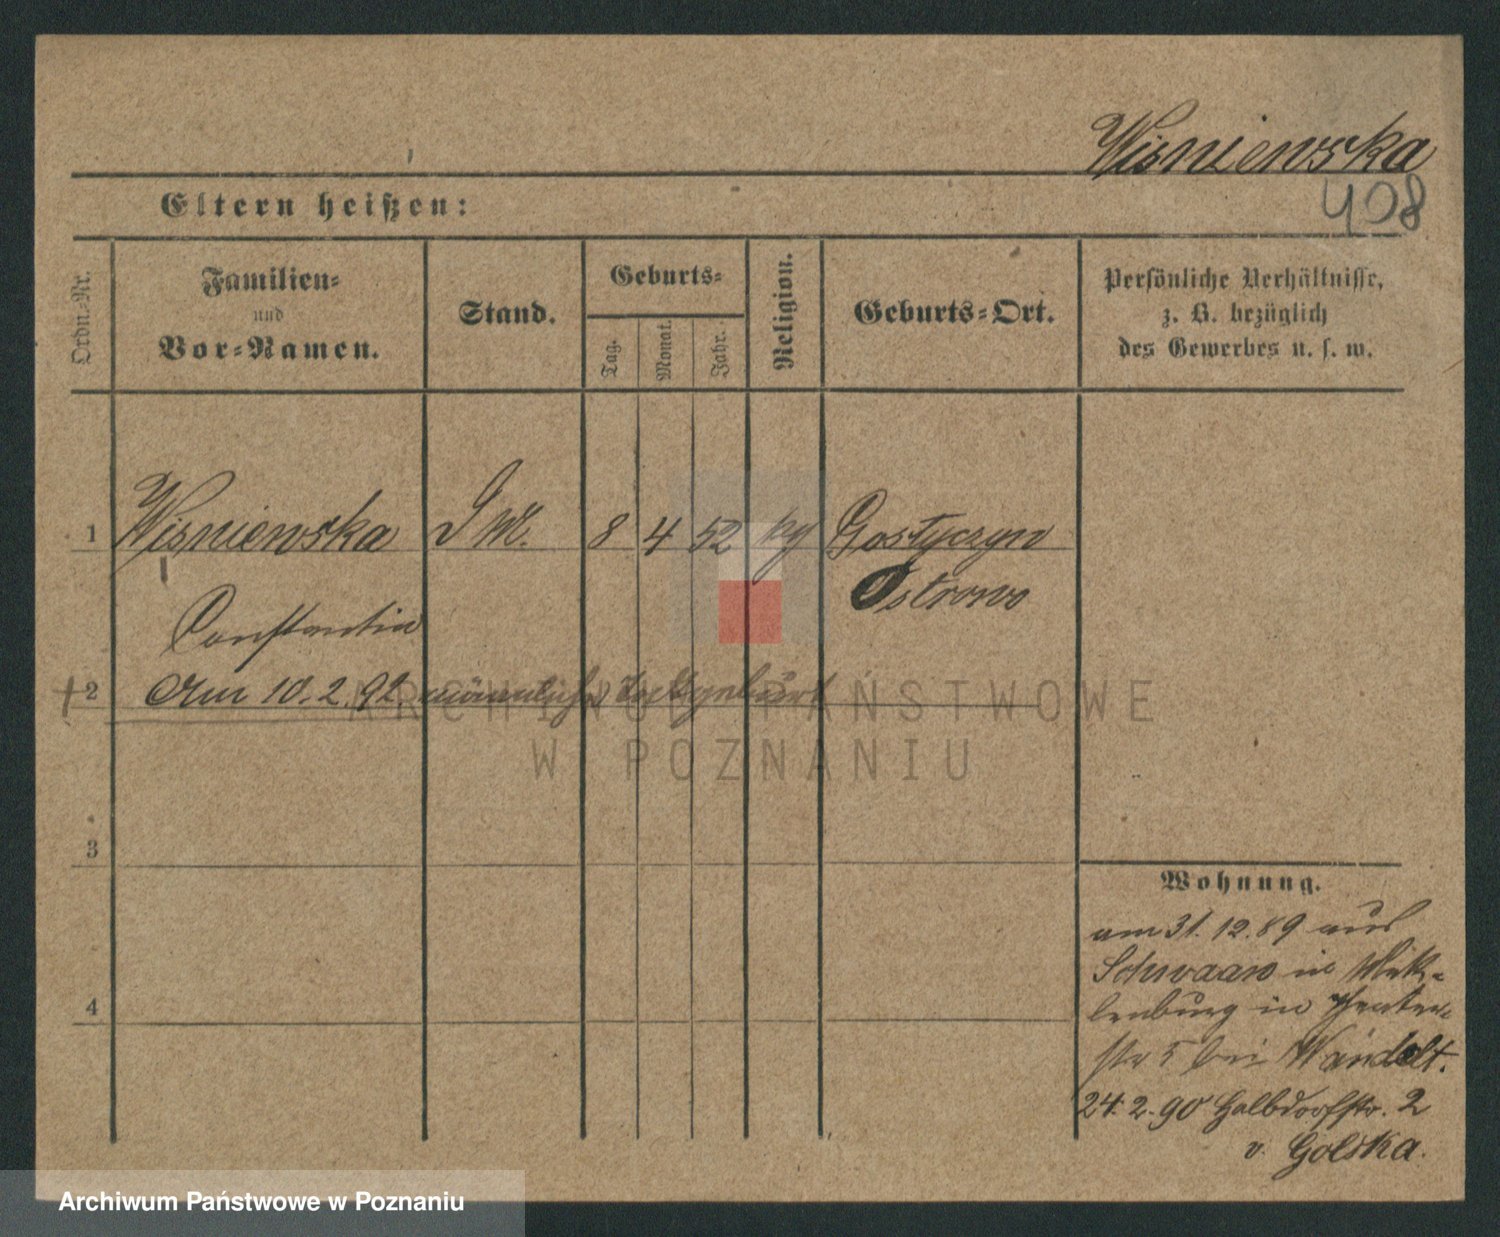 Wisniewska
408
Eltern heißen:
Ordn.-Nr.
Familien-
und
Vor-Namen.
Stand.
Geburts-
Tag.
Monat.
Jahr.
Religion.
Geburts-Ort.
Persönliche Verhältnisse,
z. B. bezüglich
des Gewerbes u. s. w.
1 Wisniewska 8 4 52 Gostyczyn
Ostrowo
Constantia
2 Am 10.2.92 männliche Todtgeburt
ARCHIWUM PAŃSTWOWE
W POZNANIU
3
4
Wohnung.
am 31.12.89 aus
Schwaan in Mek-
lenburg in Theater-
str 5 bei Wandelt.
24.2.90 Halbdorfstr. 2
v. Golska.
Archiwum Państwowe w Poznaniu